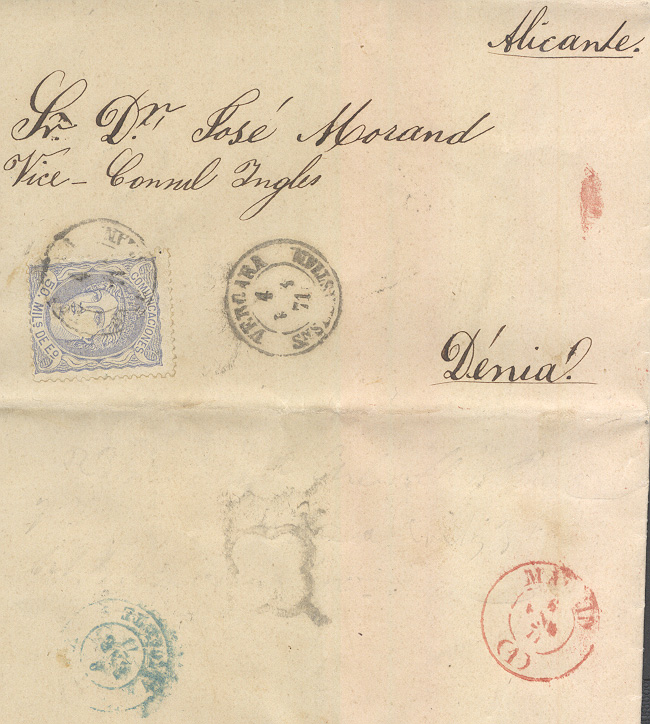 Alicante.
Sr. Dn. José Morand
Vice-Consul Ingles
COMUNICACIONES
50 MILS DE Eo.
VERGARA
4
71
Dénia
MADRID
(1)